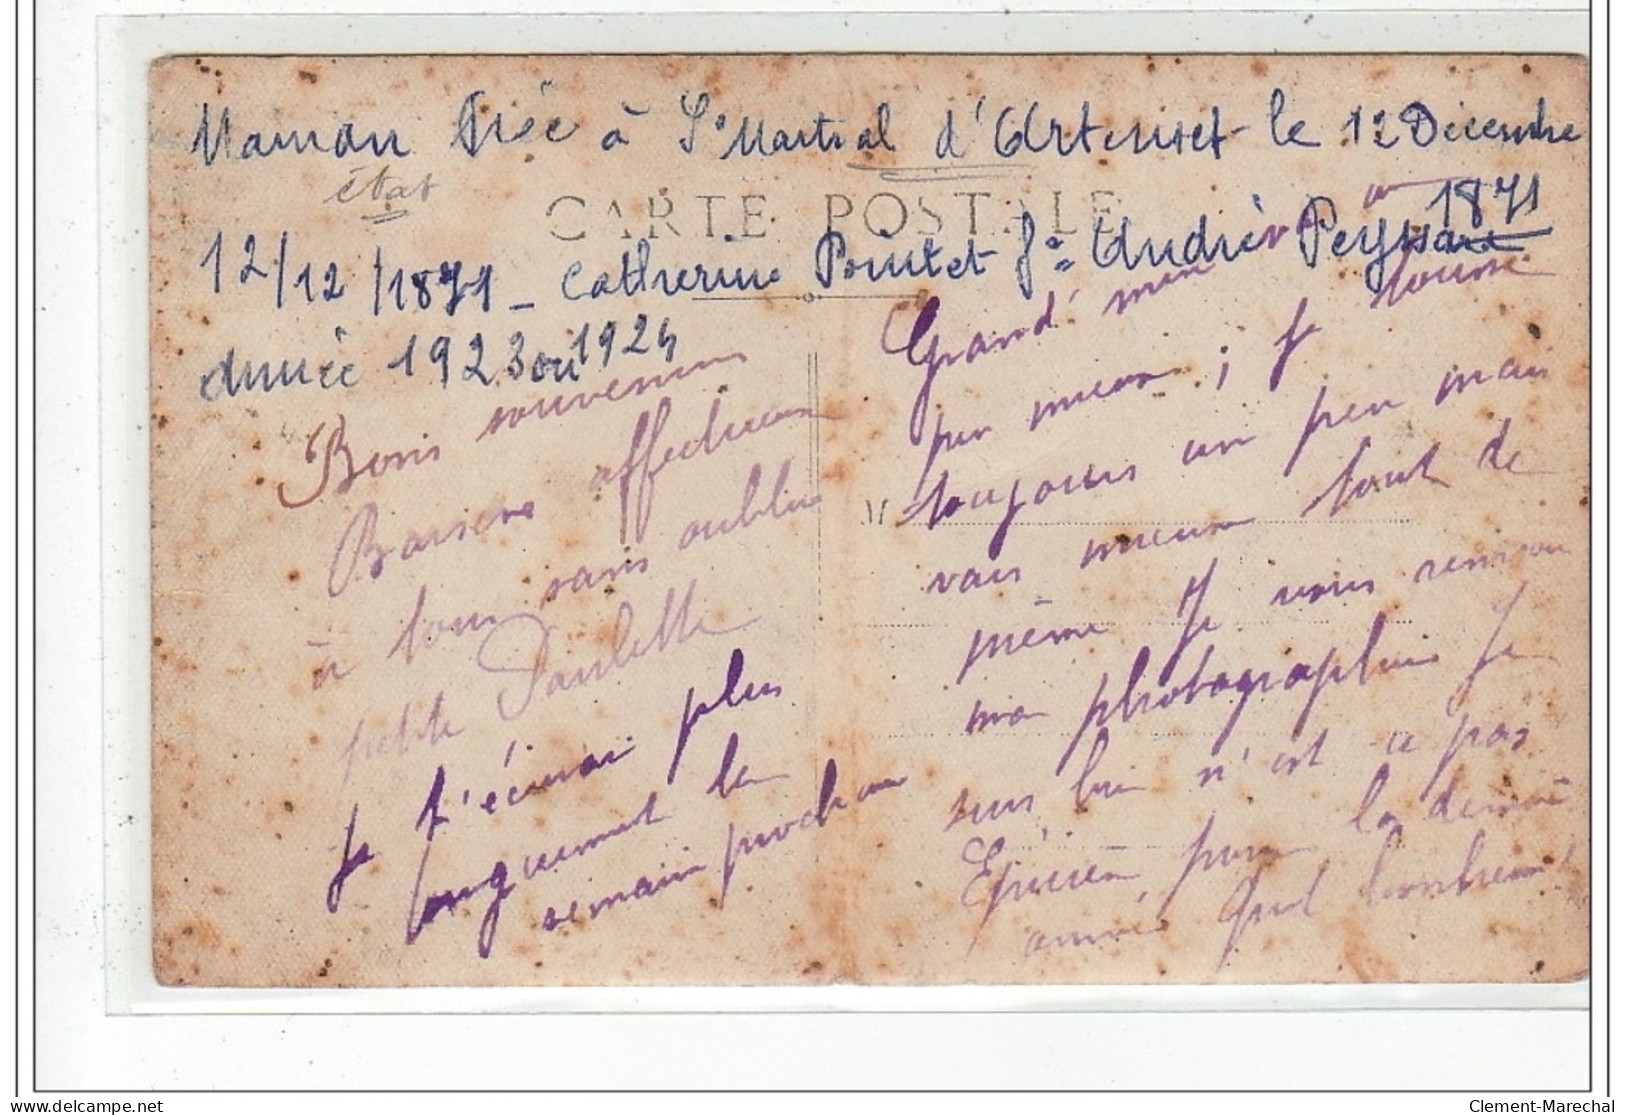 Maman Née à St Martial d'Artenset le 12 Décembre
1871
état
CARTE POSTALE
12/12/1871 - Catherine Pointet Fe André Peyssard
Année 1923 ou 1924
Bons souvenirs
Baisers affectueux
à tous sans oublier
petite Paulette
Je t'écrirai plus
longuement la
semaine prochaine
Grand'mère va un
peu mieux ; Je tousse
toujours un peu mais
vais mieux tout de
même Je vous renvoie
ma photographie Je
suis bien n'est ce pas
Epicière, pour la dernière
année Quel bonheur!
Clement-Marechal